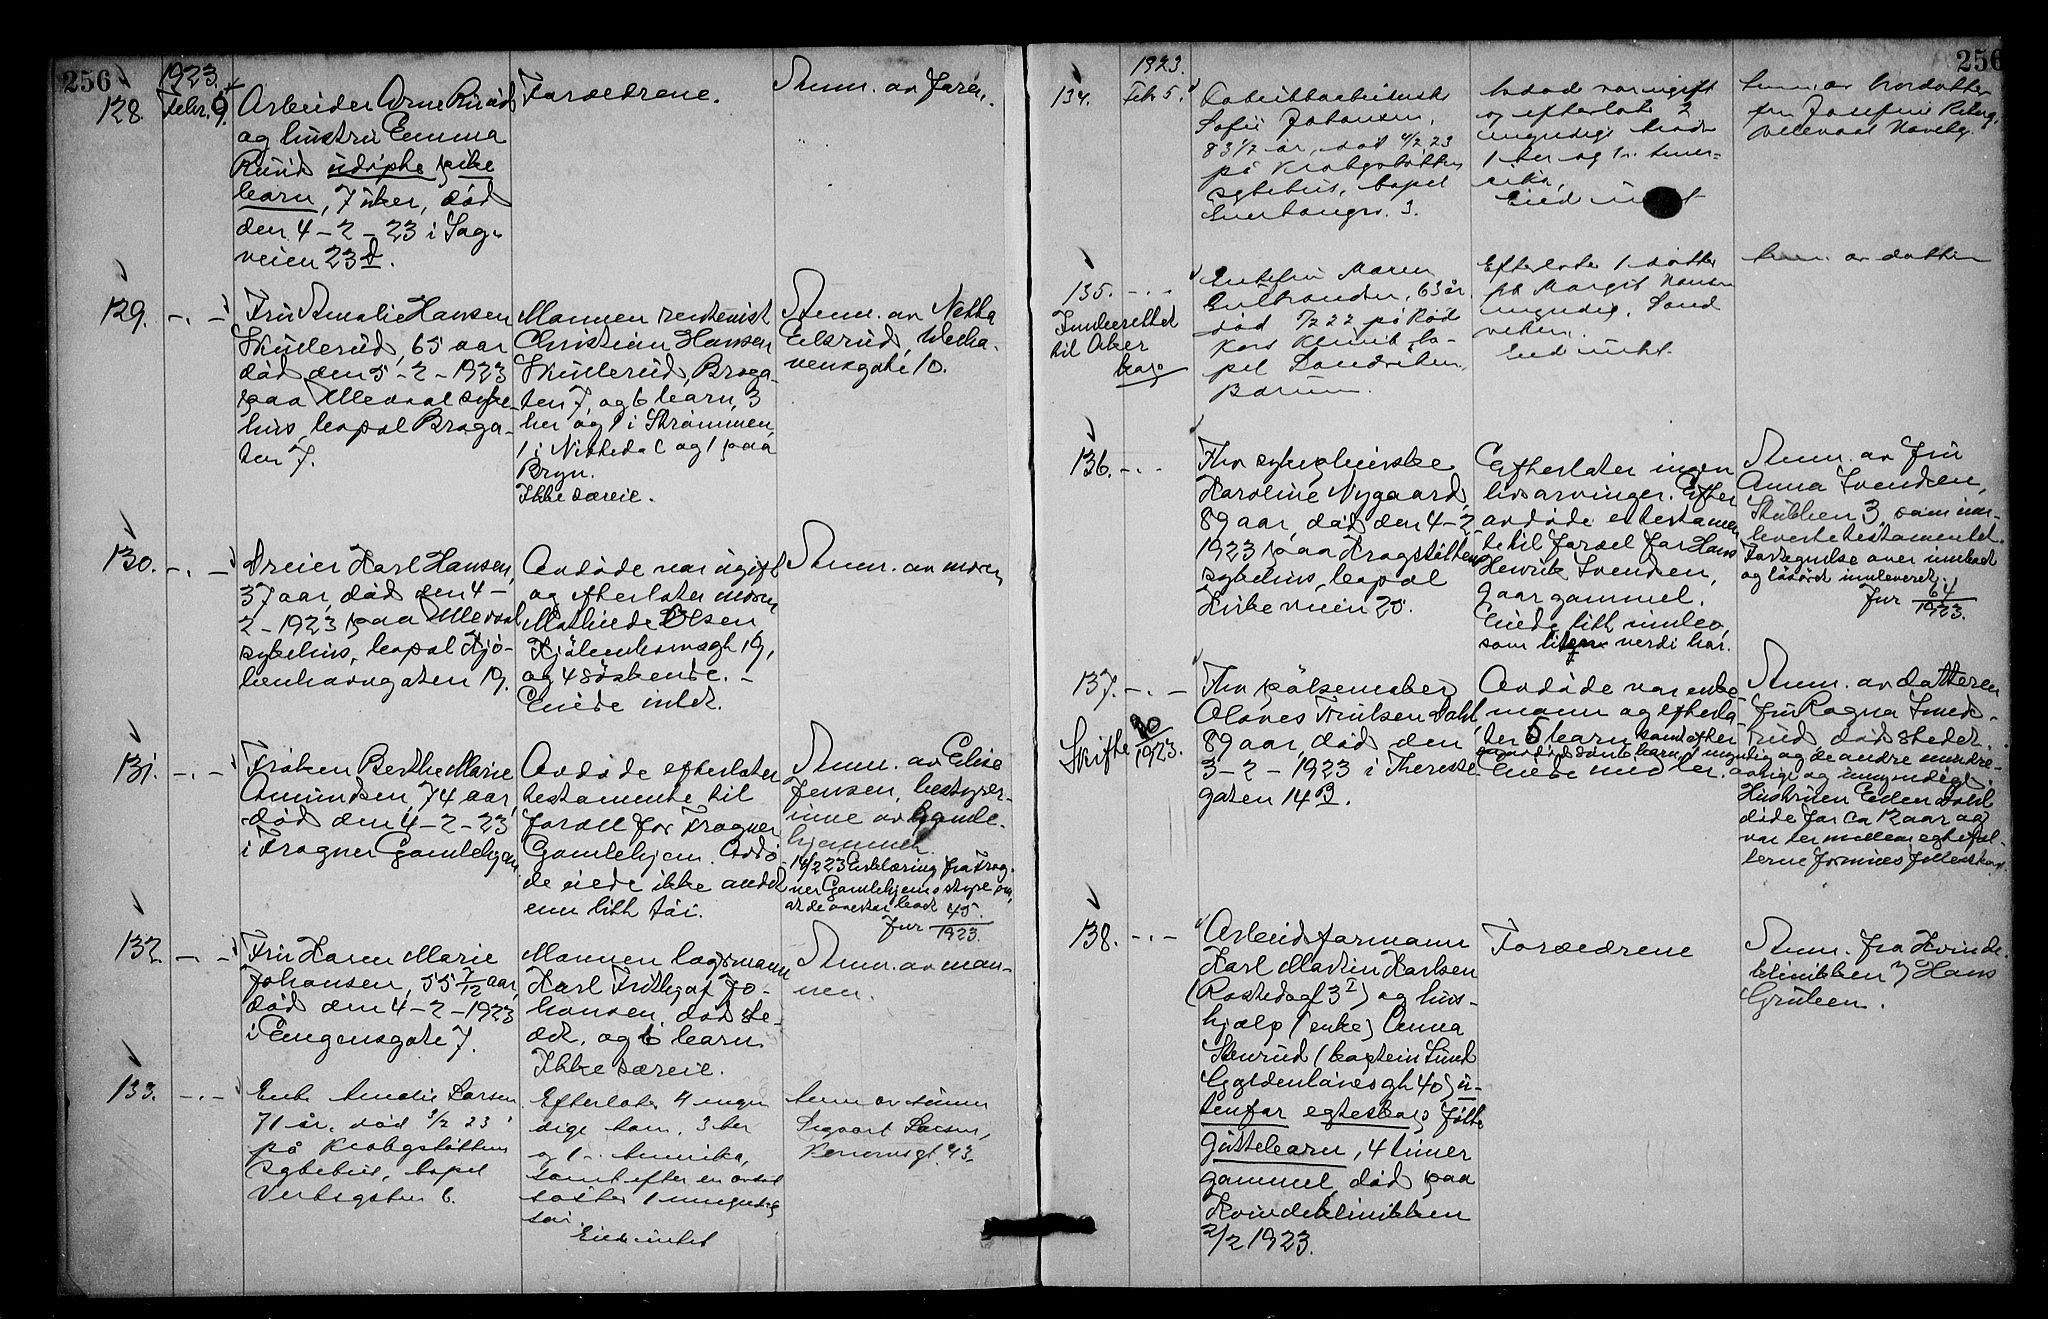 256
1923.
128.
Febr. 9.
Arbeider Arne Ruud
og hustru Emma
Ruud udøpte pike
barn, 7 uker, død
den 4-2-23 i Sag-
veien 23 d.
Forældrene.
Anm. av faren.
129.
Fru Amalie Hansen
Skullerud, 65 aar
død den 5-2-1923
paa Ulleval syke-
hus, bopæl Braga-
ten 7.
Mannen rentenist
Christian Hansen
Skullerud, Braga-
ten 7, og 6 barn, 3
her og 1 i Strømmen,
1 i Nittedal og 1 paa
Bryn.
Ikke særeie.
Anm. av Netta
Eilsrud,
vensgate 10.
130.
Dreier Karl Hansen,
37 aar, død den 4-
2-1923 paa Ulleval
sykehus, bopæl Kjø-
benhavngaten 19.
Avdøde var ugift
og efterlater moren
Mathilde Olsen
Kjøbenhavnsgt 19,
og 4 søskende. -
Eiede intet.
Anm. av moren
131.
Frøken Berthe Marie
Amundsen, 74 aar,
død den 4-2-23
i Frogner Gamlehjem
Avdøde efterlater
testamente til
fordel for Frogner
Gamlehjem. Avdø-
de eiede ikke andet
enn litt tøi.
Anm. av Elise
Jensen, bestyrer-
inne av gamle-
hjemmet.
14/2 23 Erklæring fra Frog-
ner Gamlehjems styre om,
at de overtar boet
Jnr 45/1923.
132.
Fru Karen Marie
Johansen, 55 7/12 aar,
død den 4-2-1923
i Eugensgate 7.
Mannen lagermann
Karl Frithjof Jo-
hansen, død ste-
det, og 6 barn.
Ikke særeie.
Anm. av man-
nen.
133.
Enke Amalie Larsen
71 år, død 3/2 23
på Krohgstøttens
sykehus, bopel
6.
Efterlater 4 myn
dige barn, 3 her
og 1 i Amerika,
samt efter en avdød
søster 1 umyndig
Eiede intet
Anm av sønnen
Sigvart Larsen,
43
256
1923.
134.
Feb 5.
Sofie Johansen,
83 1/2 år, død 4/2 23
på Krohgstøttens
sykehus, bopel
3.
Avdød var ugift
og efterlot 2
myndige
1 her og 1 i Amer-
ika,
Eied intet
anm. av brordatter
fru Josefine
135.
Innberettet
til Aker
Enkefru Maren
Gulbrandsen, 63 år
død på Rød
Kors Klinik, bo-
pel Sandviken,
Bærum.
Efterlater 1 datter
frk Margit Hansen
myndig, Sand
viken.
Eied intet.
Anm. av datteren
136.
Fhv sykepleierske
Karoline Nygaard,
89 aar, død den 4-2
1923 paa Krogstøttens
sykehus, bopæl
Kirkeveien 25.
Efterlater ingen
livsarvinger. Efter
avdøde er testamen
te til fordel for Hans
Henrik Svendsen,
9 aar gammel.
Eiede litt innbo
som litgen verdi har.
Anm. av Fru
Anna Svendsen,
Stubben 3, som inn-
leverte testamentet.
Fortegnelse over innboet
og løsøret innleveret.
Jnr 64/1923.
137.
Skifte 20/1923.
Fhv pølsemaker
Olaves Trulsen Dahl,
89 aar, død den
3-2-1923 i Therese-
gaten 14 B.
Avdøde var enke-
mann og efterla-
ter 5 barn, samt efter
en avdød søn 6 barn, 1 myndig og de andre mindre-
aarige og umyndige.
Eiede midler.
Anm. av datteren
fru Ragna Smed-
rud, død stedet.
Hustruen Ellen Dahl
døde for ca 12 aar og
var der mellem egtefæl-
lerne formues fellesskap.
138.
Arbeidsformann
Karl Martin Karlsen
(Rostedsgt 3 I) og hus-
hjælp (enke) Anna
Stenrud (kaptein Lund
Gyldenløvesgt 40) u-
tenfor egteskap fødte
guttebarn, 4 timer
gammel, død paa
Kvindeklinikken
2/2 1923.
Forældrene
Anm. fra Kvinde-
klinikken v/ Hans
Gruben.